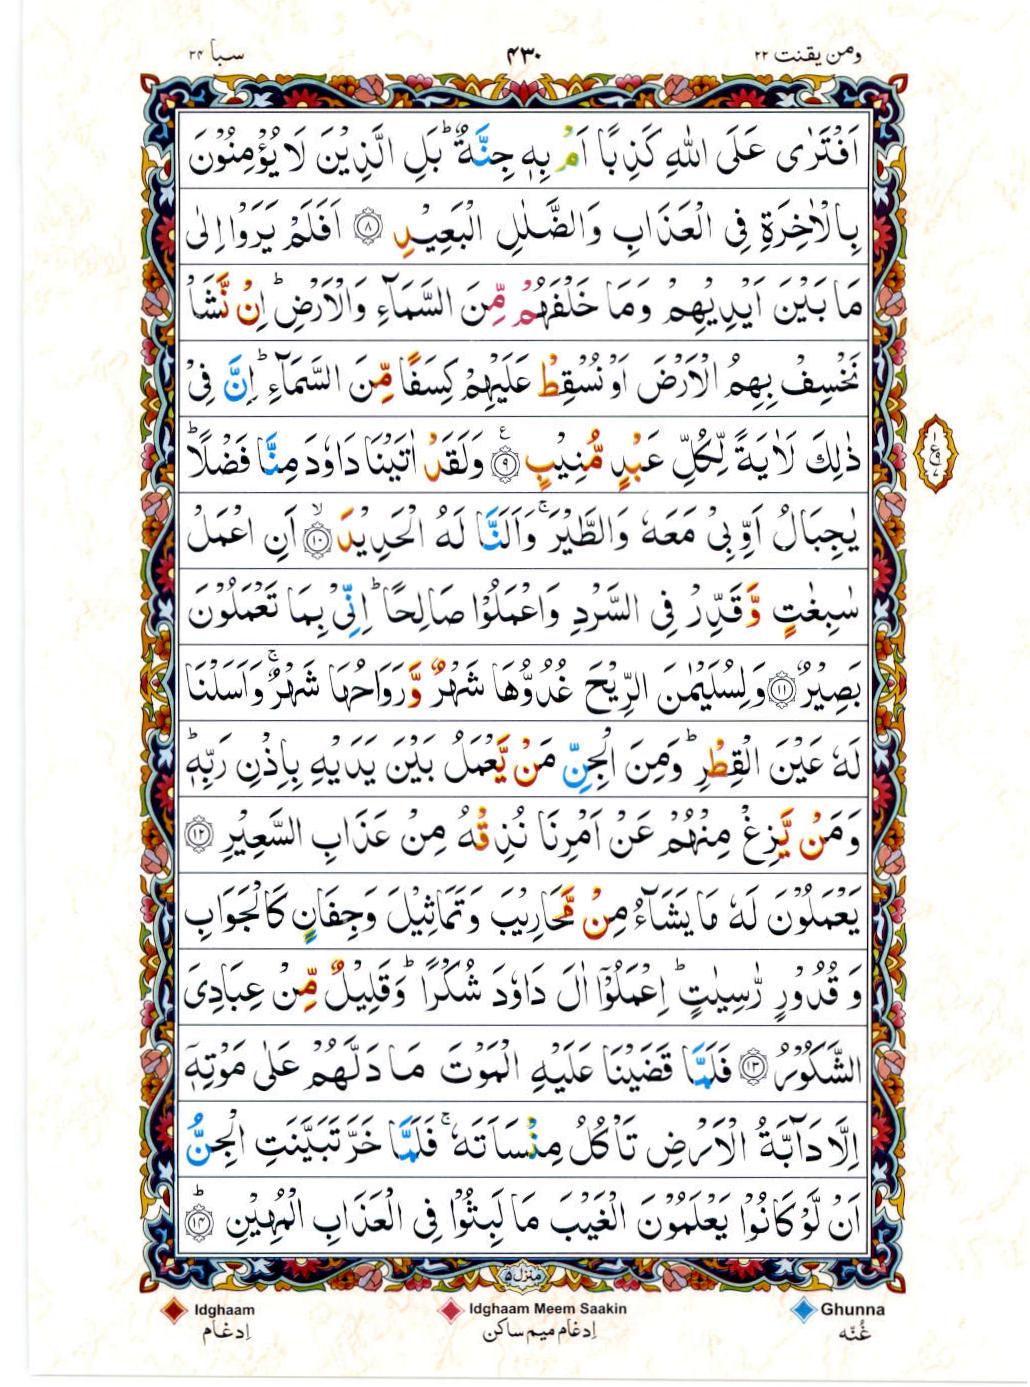 ومن یقنت ۲۲
۴۳۰
سبا ۳۴
اَفْتَرٰى عَلَى اللّٰهِ كَذِبًا اَمْ بِهٖ جِنَّةٌ ؕ بَلِ الَّذِيْنَ لَا يُؤْمِنُوْنَ
بِالْاٰخِرَةِ فِى الْعَذَابِ وَالضَّلٰلِ الْبَعِيْدِ ۝۸ اَفَلَمْ يَرَوْا اِلٰى
مَا بَيْنَ اَيْدِيْهِمْ وَمَا خَلْفَهُمْ مِّنَ السَّمَآءِ وَالْاَرْضِ ؕ اِنْ نَّشَاْ
نَخْسِفْ بِهِمُ الْاَرْضَ اَوْ نُسْقِطْ عَلَيْهِمْ كِسَفًا مِّنَ السَّمَآءِ ؕ اِنَّ فِىْ
ذٰلِكَ لَاٰيَةً لِّكُلِّ عَبْدٍ مُّنِيْبٍ ۝۹ ع وَلَقَدْ اٰتَيْنَا دَاوٗدَ مِنَّا فَضْلًا ؕ
يٰجِبَالُ اَوِّبِىْ مَعَهٗ وَالطَّيْرَ ۚ وَاَلَنَّا لَهُ الْحَدِيْدَ ۝۱۰ ۙ اَنِ اعْمَلْ
سٰبِغٰتٍ وَّقَدِّرْ فِى السَّرْدِ وَاعْمَلُوْا صَالِحًا ؕ اِنِّىْ بِمَا تَعْمَلُوْنَ
بَصِيْرٌ ۝۱۱ وَلِسُلَيْمٰنَ الرِّيْحَ غُدُوُّهَا شَهْرٌ وَّرَوَاحُهَا شَهْرٌ ۚ وَاَسَلْنَا
لَهٗ عَيْنَ الْقِطْرِ ؕ وَمِنَ الْجِنِّ مَنْ يَّعْمَلُ بَيْنَ يَدَيْهِ بِاِذْنِ رَبِّهٖ ؕ
وَمَنْ يَّزِغْ مِنْهُمْ عَنْ اَمْرِنَا نُذِقْهُ مِنْ عَذَابِ السَّعِيْرِ ۝۱۲
يَعْمَلُوْنَ لَهٗ مَا يَشَآءُ مِنْ مَّحَارِيْبَ وَتَمَاثِيْلَ وَجِفَانٍ كَالْجَوَابِ
وَ قُدُوْرٍ رّٰسِيٰتٍ ؕ اِعْمَلُوْٓا اٰلَ دَاوٗدَ شُكْرًا ؕ وَقَلِيْلٌ مِّنْ عِبَادِىَ
الشَّكُوْرُ ۝۱۳ فَلَمَّا قَضَيْنَا عَلَيْهِ الْمَوْتَ مَا دَلَّهُمْ عَلٰى مَوْتِهٖٓ
اِلَّا دَآبَّةُ الْاَرْضِ تَاْكُلُ مِنْسَاَتَهٗ ۚ فَلَمَّا خَرَّ تَبَيَّنَتِ الْجِنُّ
اَنْ لَّوْ كَانُوْا يَعْلَمُوْنَ الْغَيْبَ مَا لَبِثُوْا فِى الْعَذَابِ الْمُهِيْنِ ۝۱۴ ؕ
منزل ۵
Idghaam
Idghaam Meem Saakin
Ghunna
اِدغام
اِدغام میم ساکن
غُنّه